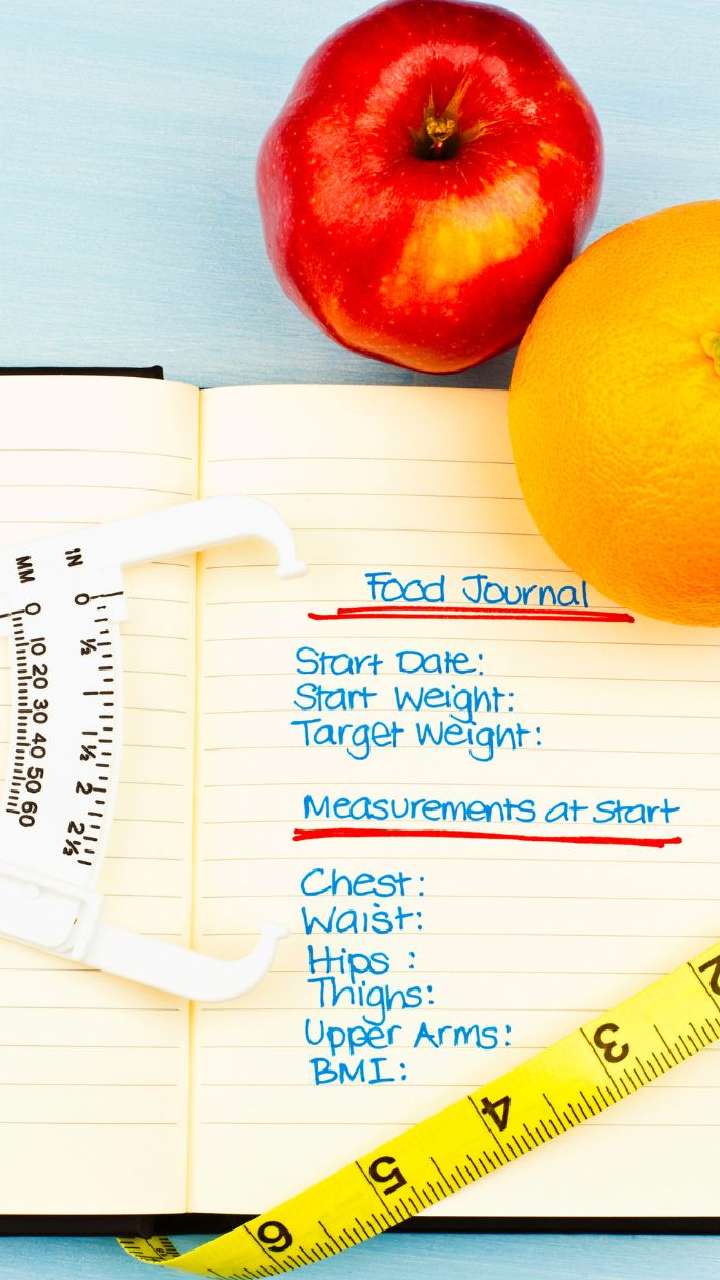 Food Journal
Start Date:
Start Weight:
Target Weight:
Measurements at Start
Chest:
Waist:
Hips :
Thighs:
Upper Arms:
BMI:
MM
IN
0
10 20 30 40 50 60
0
½
1
1½
2
2½
2
3
4
5
6